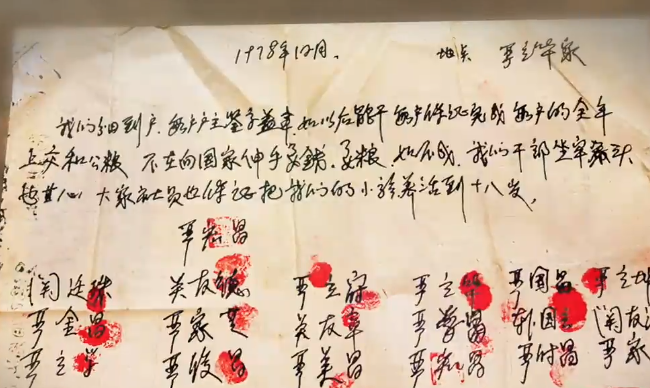 1978年12月. 地点 严立华家
我们分田到户,每户户主签字盖章,如以后能干,每户保证完成每户的全年
上交和公粮 不在向国家伸手要钱、要粮,如不成,我们干部坐牢杀头
也甘心,大家社员也保证把我们的小孩养活到十八岁,
严宏昌
关廷珠 关友德 严立符 严立华 严国昌 严立坤
严金昌 严家芝 关友章 严学昌 韩国云 关友江
严立学 严俊昌 严美昌 严宏昌 严付昌 严家